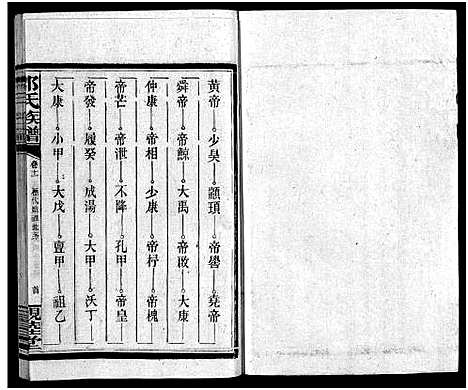 黄帝 少昊 顓頊 帝嚳 堯帝
舜帝 帝鯀 大禹 帝啟 大康
仲康 帝相 少康 帝杼 帝槐
帝芒 帝泄 不降 孔甲 帝皇
帝發 履癸 成湯 大甲 沃丁
大康 小甲 大戊 亶甲 祖乙
氏族譜
首